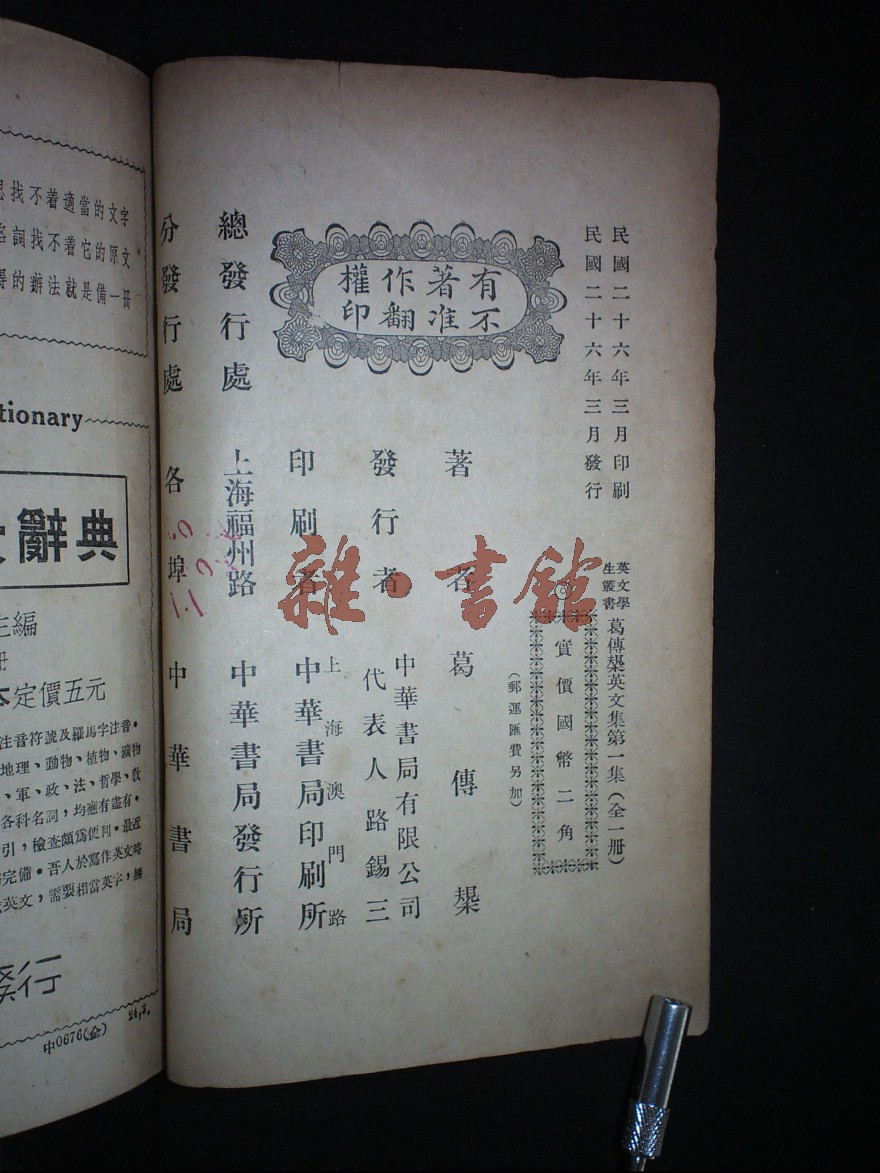 民國二十六年三月印刷
民國二十六年三月發行
英文學
生叢書
葛傳槼英文集第一集（全一冊）
實價國幣二角
（郵運匯費另加）
有著作權
不准翻印
著者 葛傳槼
發行者
中華書局有限公司
代表人路錫三
印刷者
上海澳門路
中華書局印刷所
總發行處 上海福州路 中華書局發行所
分發行處 各埠中華書局
雜·書館
找不着適當的文字
詞找不着它的原文
的辦法就是備一冊
tionary
辭典
編
冊
定價五元
注音符號及羅馬字注音。
地理、動物、植物、礦物
、軍、政、法、哲學、教
各科名詞，均應有盡有。
引，檢查頗爲便利。最近
完備。吾人於寫作英文時
英文，需要相當英字，無
發行
中0676(金)
24,3.